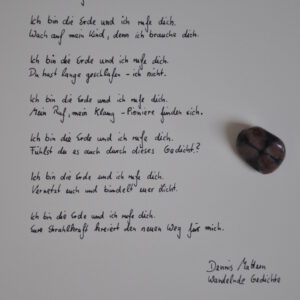 Ich bin die Erde und ich rufe dich.
Wach auf mein Kind, denn ich brauche dich.
Ich bin die Erde und ich rufe dich.
Du hast lange geschlafen - ich nicht.
Ich bin die Erde und ich rufe dich.
Mein Ruf, mein Klang - Pioniere finden sich.
Ich bin die Erde und ich rufe dich.
Fühlst du es auch durch dieses Gedicht?
Ich bin die Erde und ich rufe dich.
Vernetzt euch und bündelt euer Licht.
Ich bin die Erde und ich rufe dich.
Eure Strahlkraft kreiert den neuen Weg für mich.
Dennis
Wandelnde Gedichte